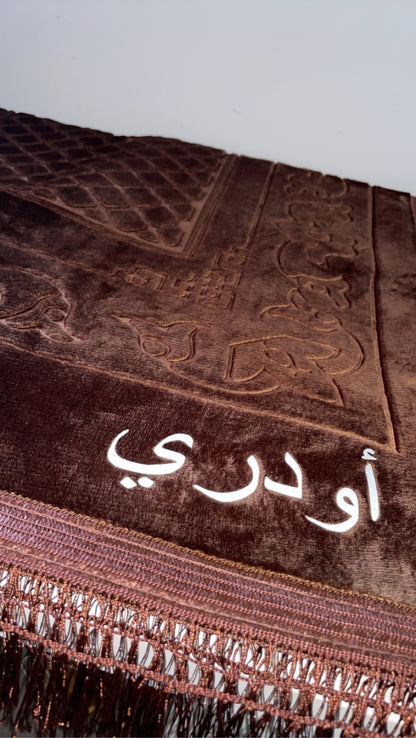 أودري